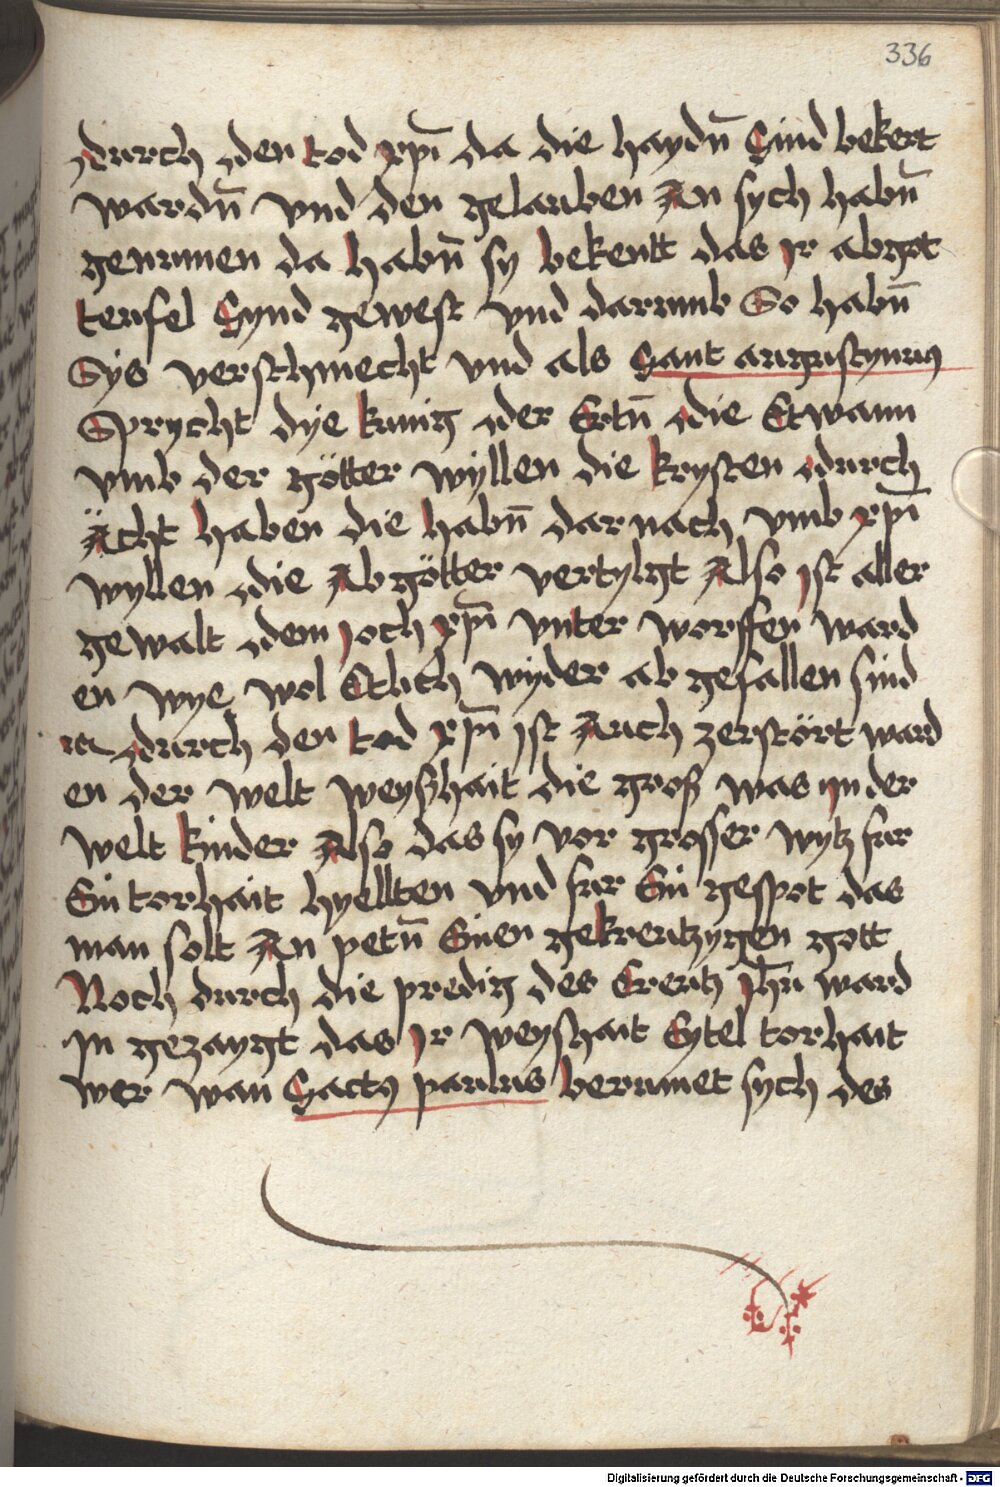 336
durch den tod xp̄i da die haydn̄ Sind bekert
wardn̄ vnd den gelauben An sych habn̄
genumen da habn̄ sy bekentt das Ir abgot
teufel Synd gewest vnd darumb So habn̄
Sys verschmecht und als Sant augustynus
Sprycht dye kunig der Ertn̄ die Etwann
vmb der götter wyllen die krysten durch
Ächt haben die habn̄ dar nach vmb xp̄i
wyllen die Abgötter vertylgt Also ist aller
gewalt dem joch xp̄i vnter worffen ward
en wye wol Etlich wyder ab gefallen sind
durch den tod xp̄i ist Auch zerstört ward
en der welt weyßhait die groß was yn der
welt kinder Also das sy vor grosser wytz fur
Ein torhait hyellten vnd fur Ein gespot das
man solt An petn̄ Einen gekreutzygen gott
Noch durch die predig des Creutz Jhū ward
In gezaygt das Ir weyshait Eytel torhait
wer wan Sactꝰ paulus berumet sych des
Digitalisierung gefördert durch die Deutsche Forschungsgemeinschaft - DFG